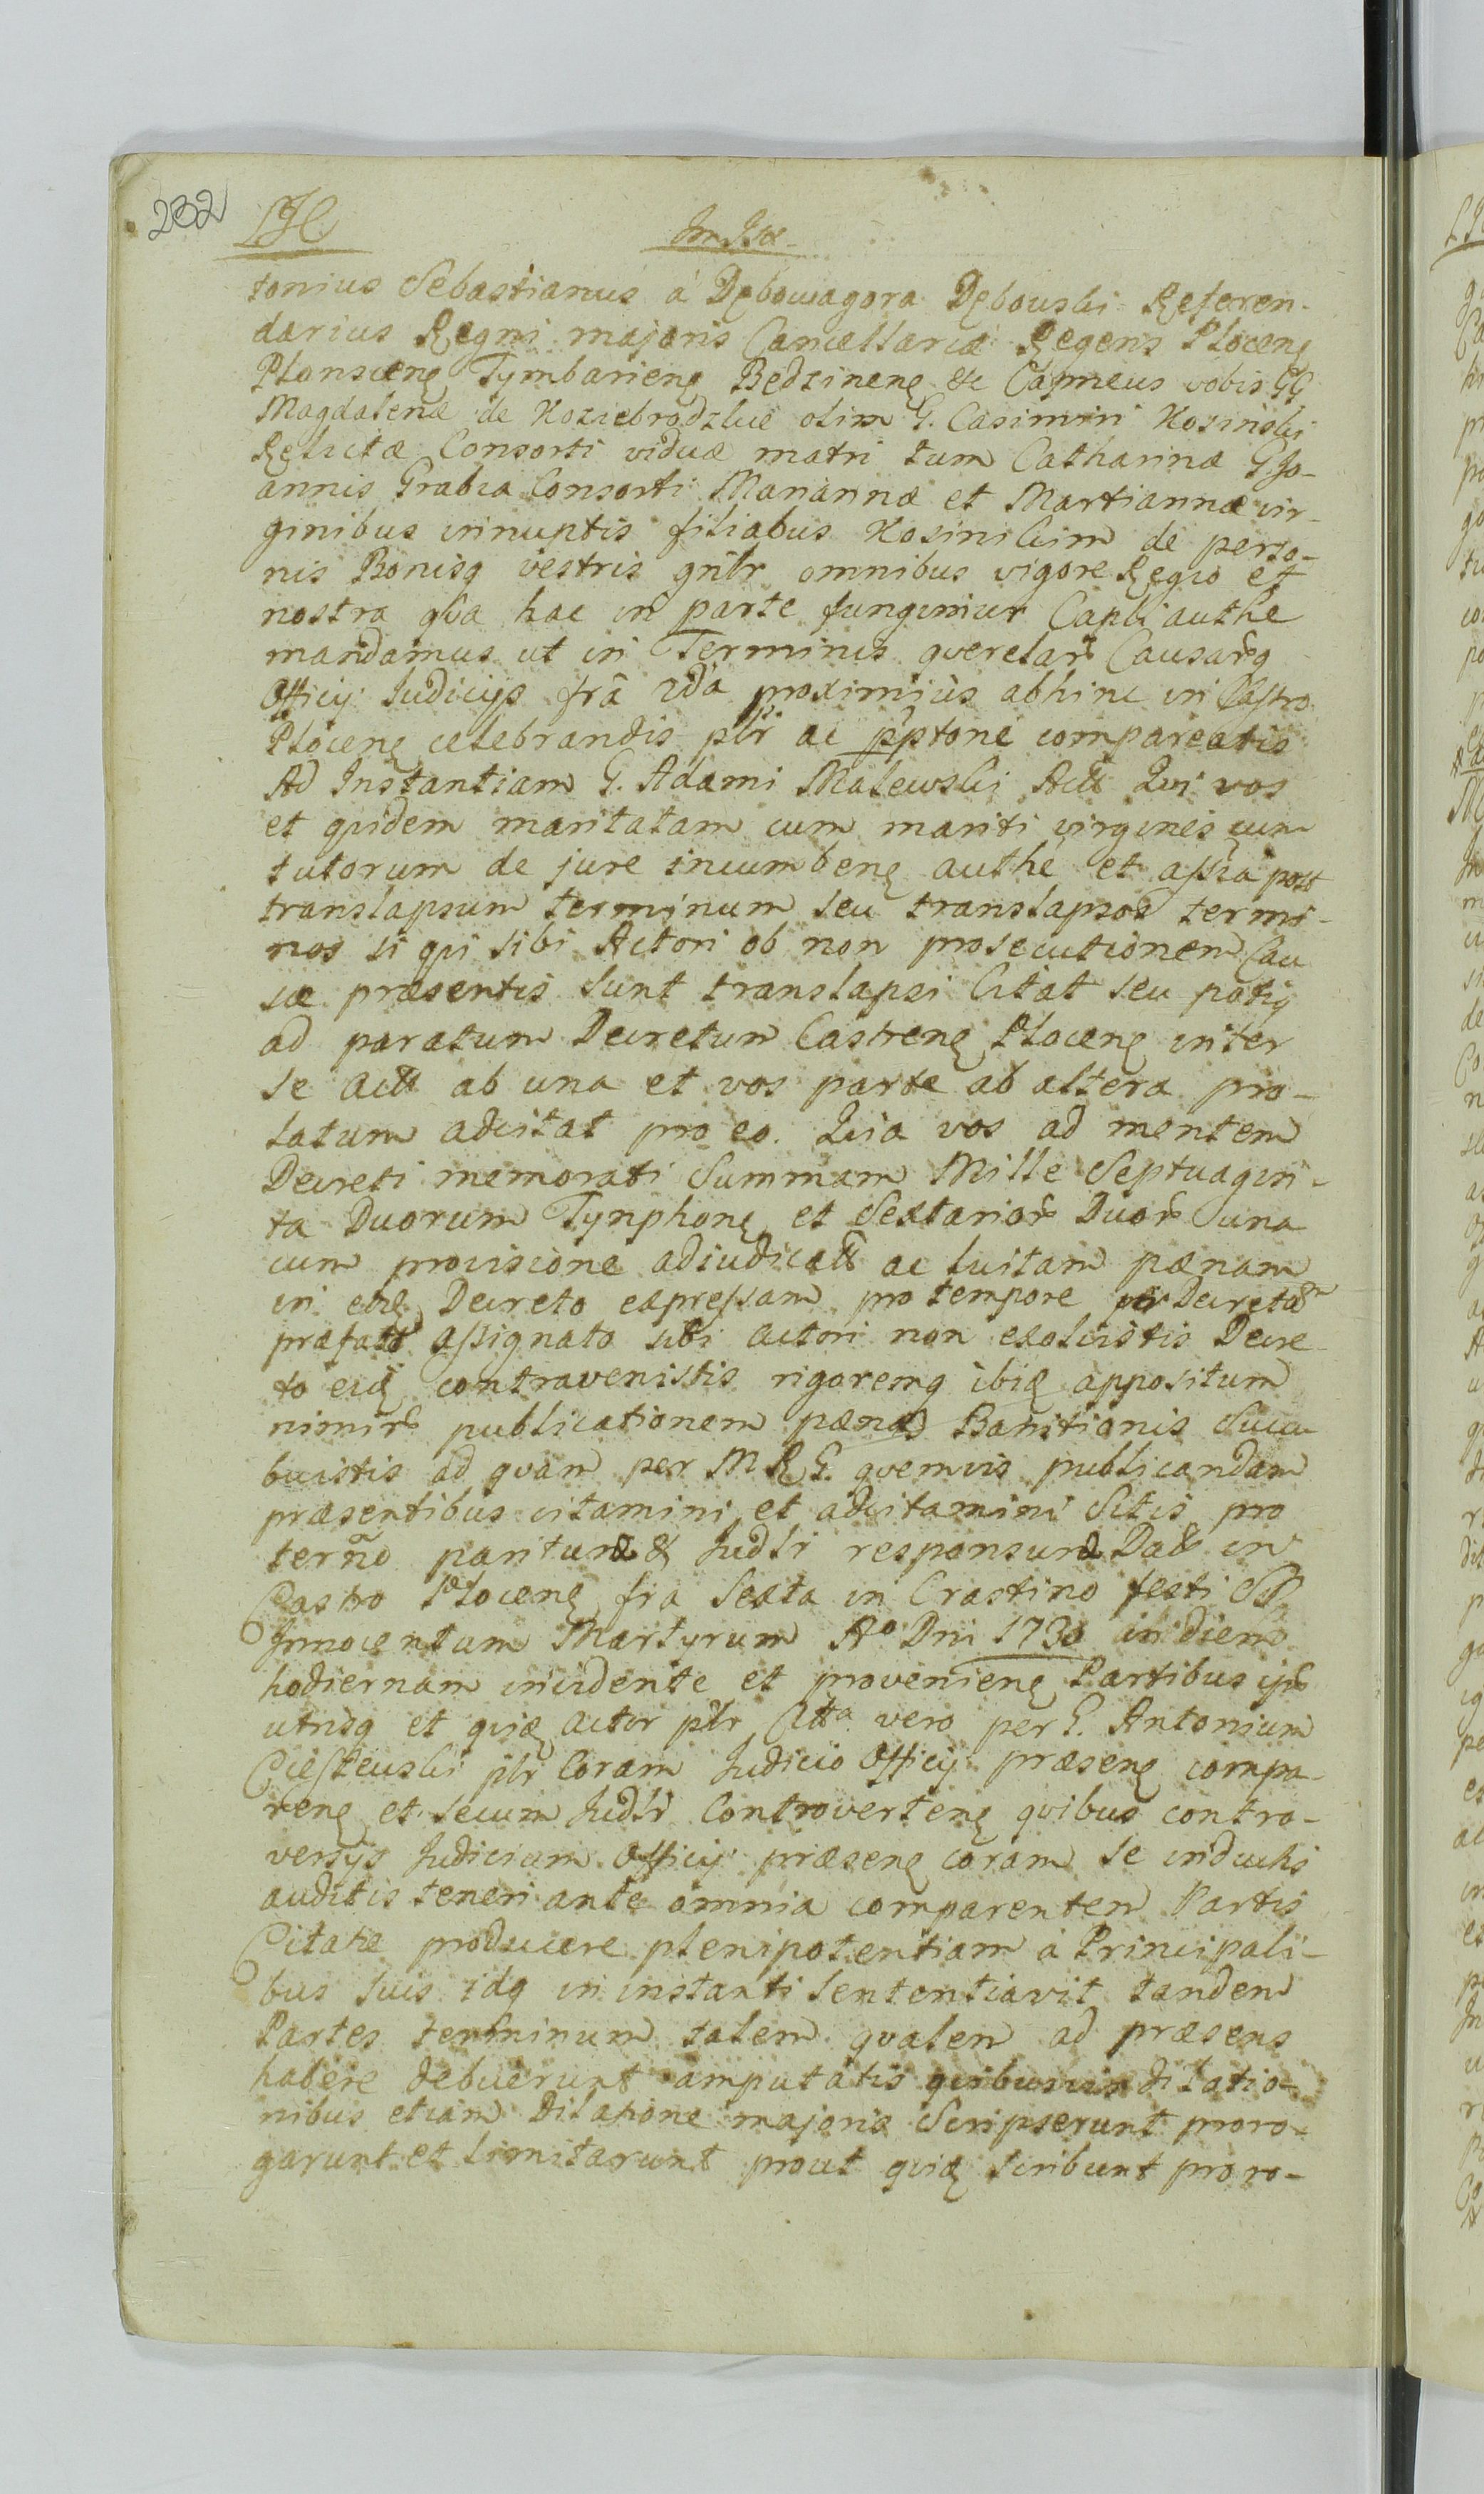 232
tonius Sebastianus á Dębowagora Dębowski Referen-
darius Regni majoris Cancellariæ Regens Plocenę
Plonscenę Tymbarienę Będzinenę &c Capneus vobis GG
Magdalenæ de Koziebrodzkie olim G. Casimiri Kosinski
Relictæ Consorti viduæ matri tum Catharinæ G Jo-
annis Grabia Consorti Mariannæ et Martiannæ vir-
ginibus innuptis filiabus Kosinskim de perso-
nis Bonisq vestris gnlr omnibus vigore Regio et
nostra qua hac in parte fungimur Capli authe
mandamus ut in Terminis querelarꝝ Causarꝝq
Officij Judicijs fra 2da proximius abhinc in Castro
Plocenę celebrandis plr ac pptorie compareatis
Ad Instantiam G. Adami Malewski Act Qui vos
et quidem maritatam cum mariti virgines cum
tutorum de jure incumbenę authe et assia post
translapsum terminum seu translapsos termi-
nos si qui sibi Actori ob non prosecutionem Cau
sæ præsentis sunt translapsi Citat seu potiq
ad paratum Decretum Castrenę Plocenę inter
se Act ab una et vos parte ab altera pro-
latum adcitat pro eo. Quia vos ad mentem
Decreti memorati Summam Mille Septuagin-
ta Duorum Tynphonę et Sextariorꝝ Duorꝝ una
cum provisione adiudicatt ac luitam pænam
in eodę Decreto expressam pro tempore per Decretum
præfatt assignato sibi actori non exolvistis Decre
to eidę contravenistis rigoremq ibidę appositum
nimirꝝ publicationem pænæ Banitionis Succu
buistis ad quam per M R G. quemvis publicandam
præsentibus citamini et adcitamini Sitis pro
termo parituræ & Judlr responsuræ Datt in
Castro Plocenę fra Sexta in Crastino festi SS
Innocentum Martyrum Ao Dni 1730 in diem
hodiernam incidente et provenienę Partibus ipsis
utrisq et quidę actor plr Citta vero per G. Antonium
Ciesteuski plr Coram Judicio Officij præsenę compa-
renę et secum Judlr Controvertenę quibus contro-
versijs Judicium Officij præsenę coram se inductis
auditis teneri ante omnia comparentem Partis
Citatæ producere plenipotentiam á Principali-
bus suis idq in instanti Sententiavit tandem
Partes terminum talem qualem ad præsens
habere debuerunt amputatis quibusvis dilatio-
nibus etiam Dilatione majoris Scripserunt proro-
garunt et limitarunt prout quidę scribunt proro-